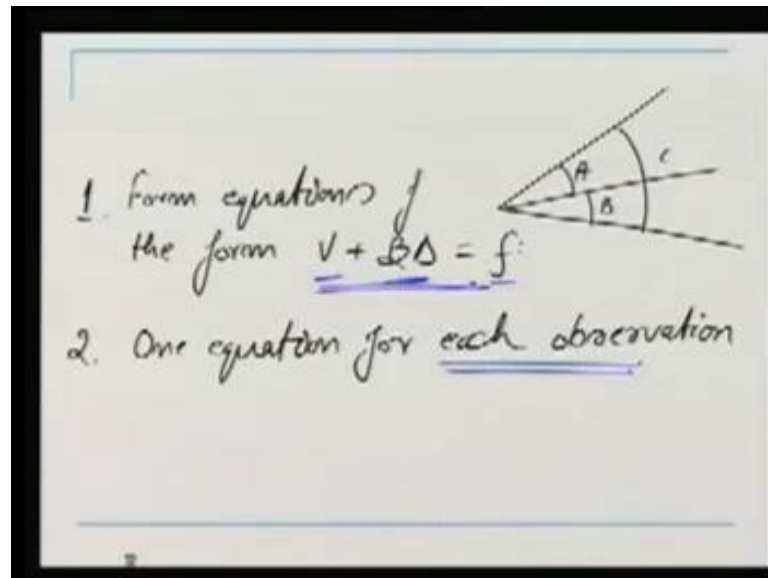 1. Form equations of
the form V + BΔ = f
2. One equation for each observation
A
B
C